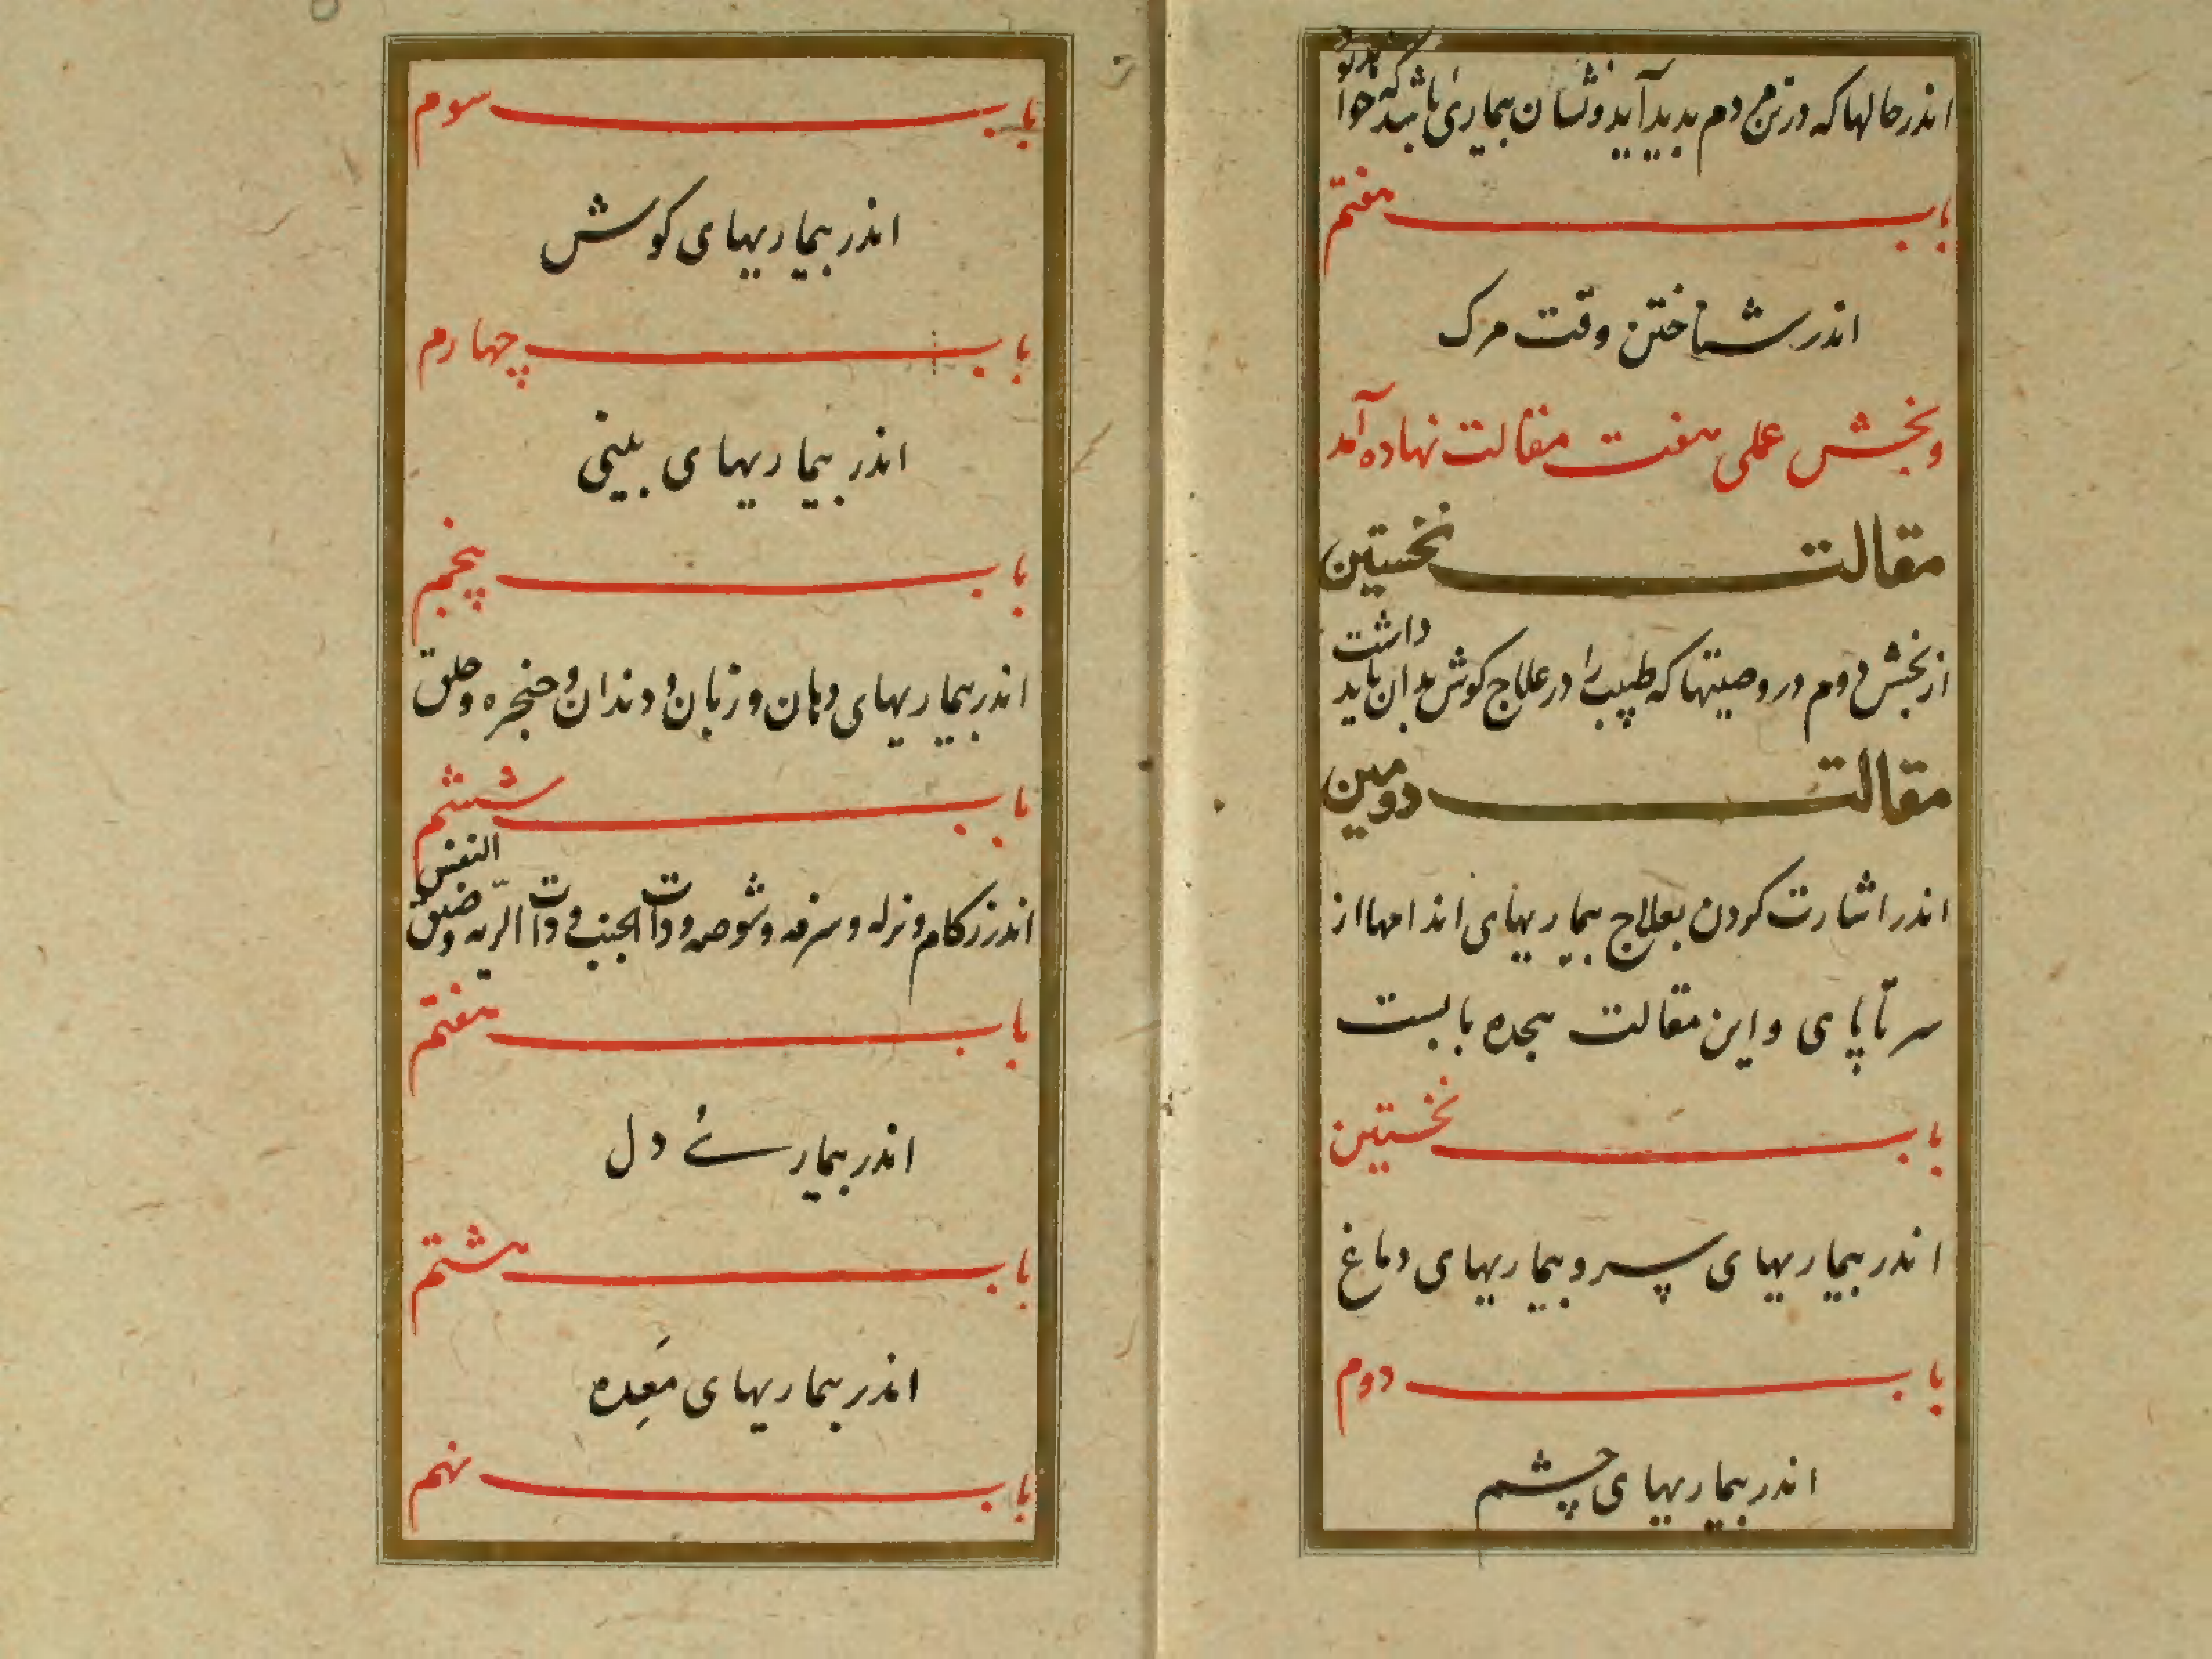 اندر حالها که در تن مردم بدید آید و نشان بیماری باشد که خواهد
باب هفتم
اندر شناختن وقت مرک
و بخش عملی هفت مقالت نهاده آمد
مقالت نخستین
از بخش دوم در وصیتها که طبیب را در علاج کوش بدان باید داشت
مقالت دومین
اندر اشارت کردن بعلاج بیماریهای اندامها از
سر تا پای و این مقالت هجده بابست
باب نخستین
اندر بیماریهای سر و بیماریهای دماغ
باب دوم
اندر بیماریهای چشم
باب سوم
اندر بیماریهای کوش
باب چهارم
اندر بیماریهای بینی
باب پنجم
اندر بیماریهای دهان و زبان و دندان و حنجره و حلق
باب ششم
اندر زکام و نزله و سرفه و شوصه و ذات الجنب و ذات الریه و ضیق النفس
باب هفتم
اندر بیماریٔ دل
باب هشتم
اندر بیماریهای مَعِده
باب نهم